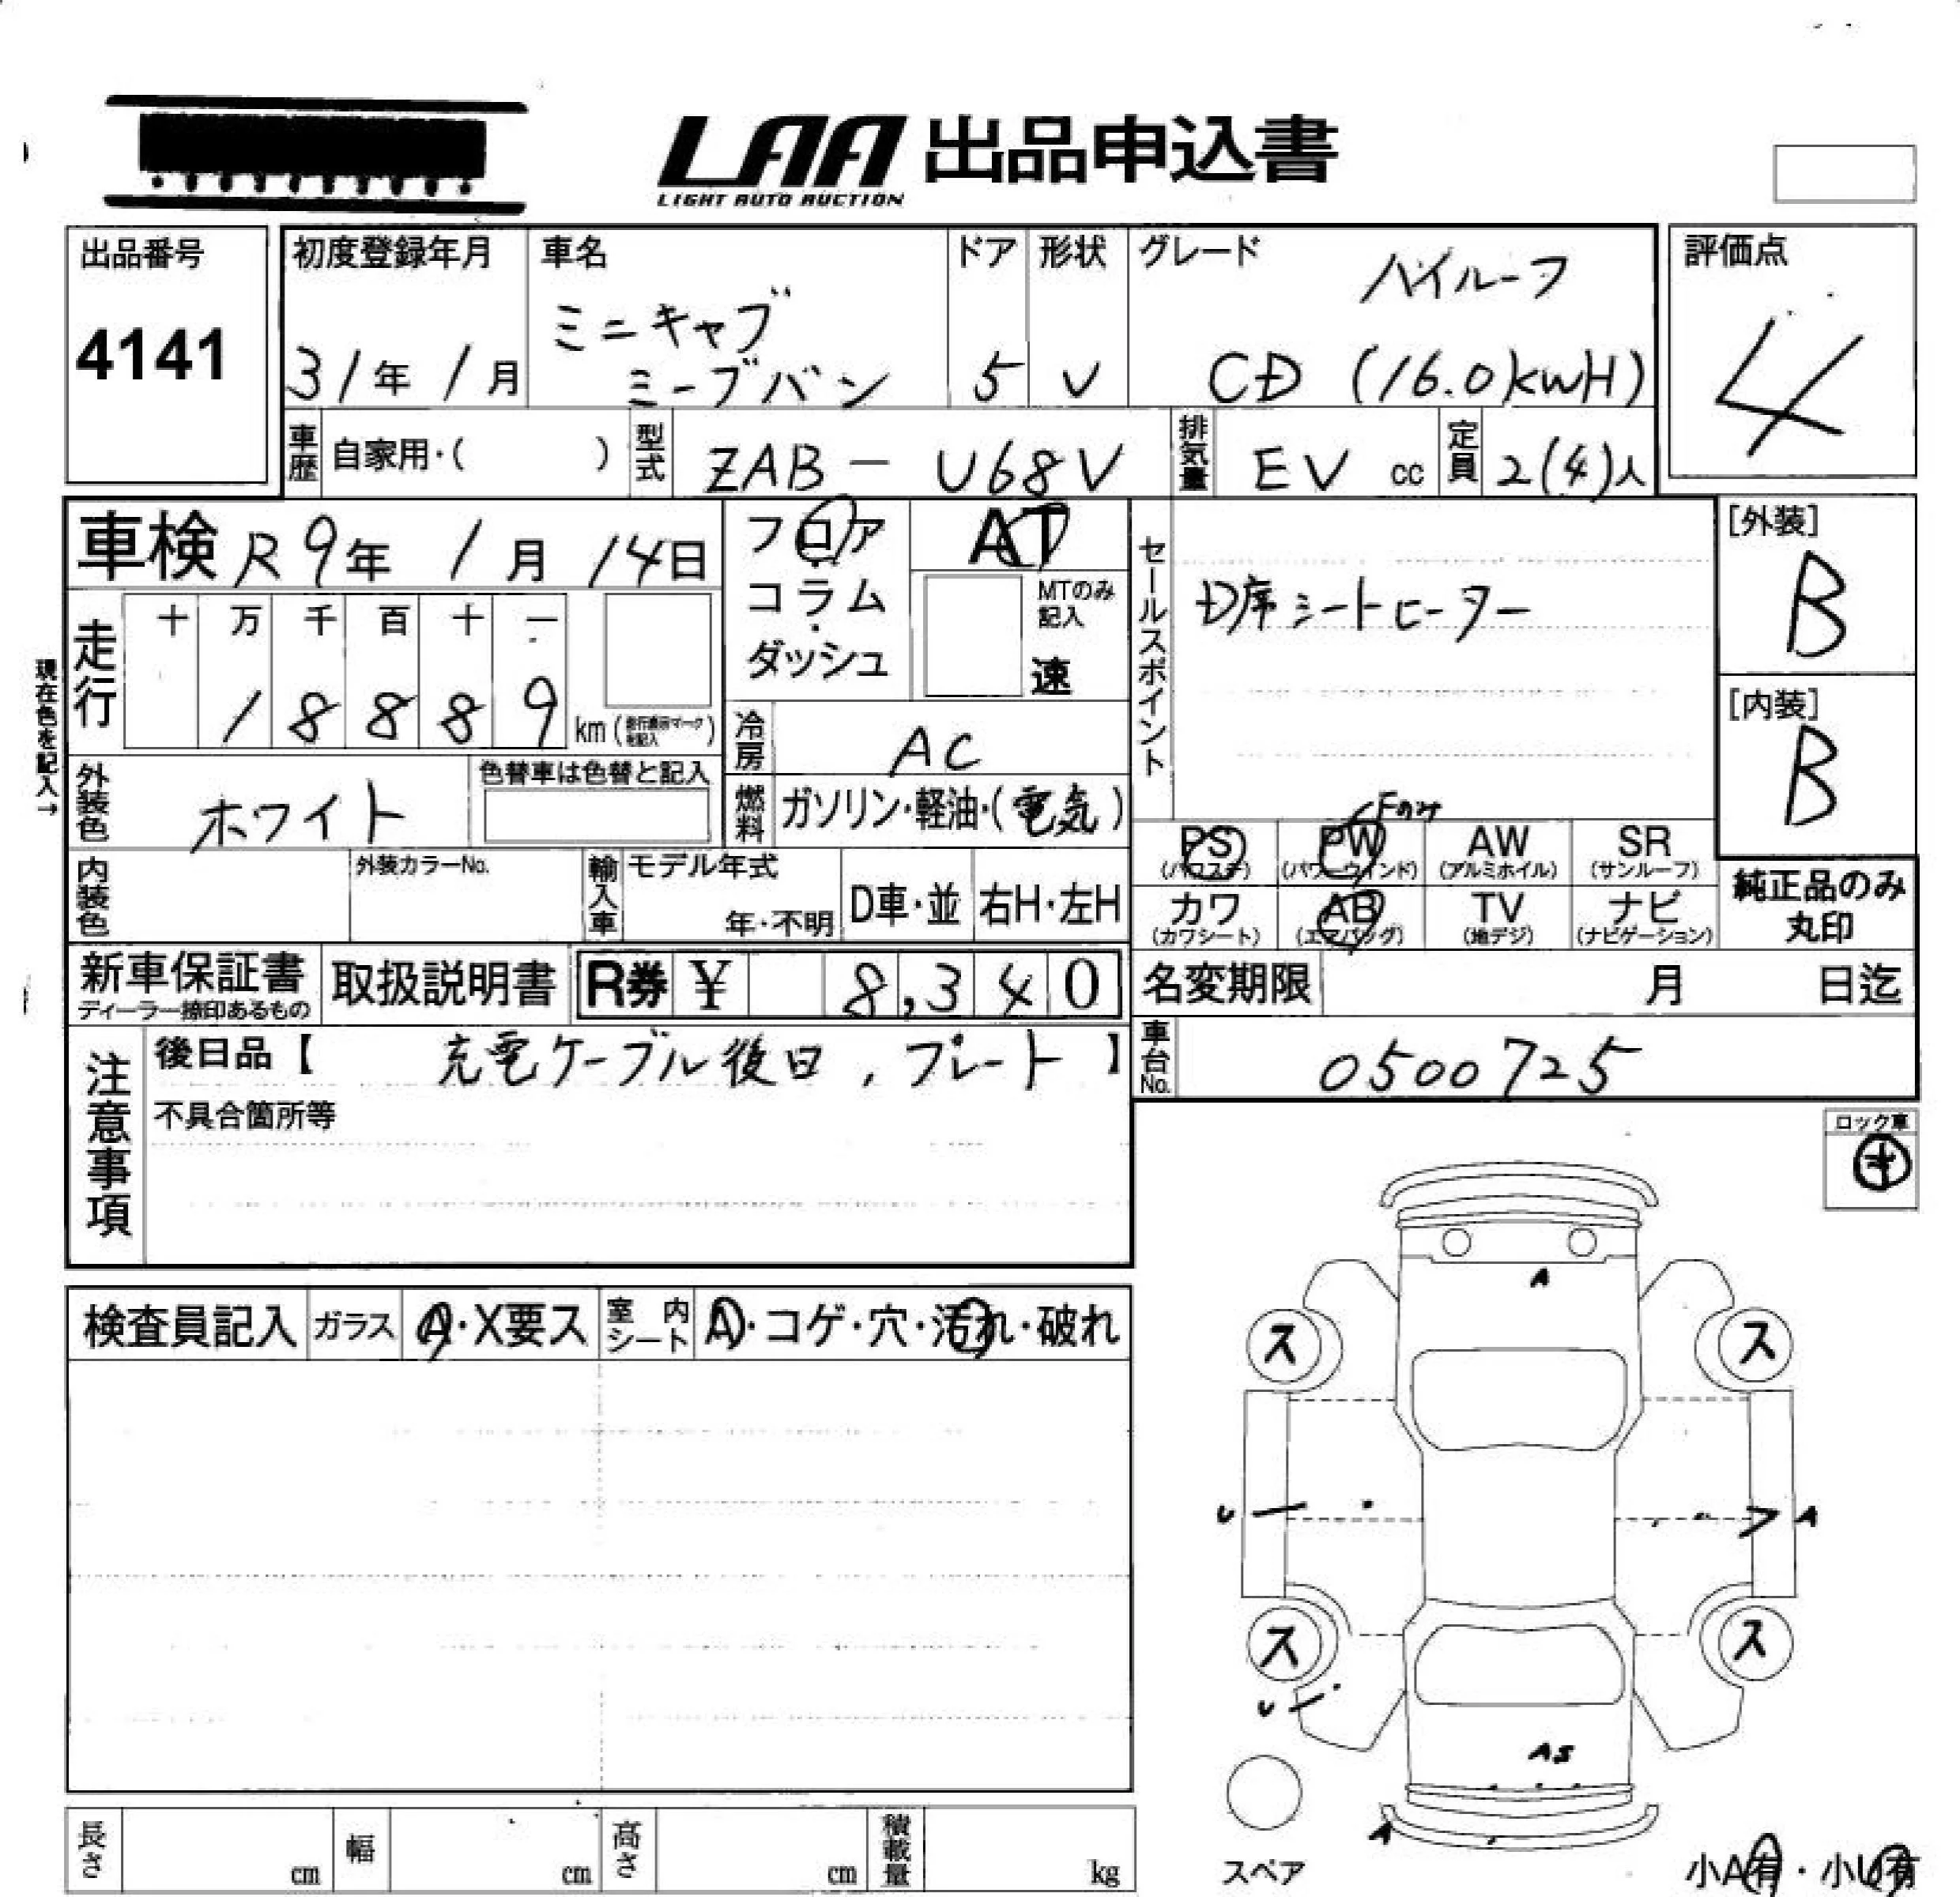 LAA 出品申込書
LIGHT AUTO AUCTION
出品番号
4141
初度登録年月
31年 1月
車名
ミニキャブ
ミーブバン
ドア
5
形状
V
グレード
ハイルーフ
CD (16.0kwH)
評価点
4
車歴 自家用・( )
型式 ZAB - U68V
排気量 EV cc
定員 2(4)人
車検 R9年 1月 14日
フロア
コラム
ダッシュ
AT
MTのみ
記入
速
セールスポイント
D席シートヒーター
[外装]
B
[内装]
B
現在色を記入→
走行
十 万 千 百 十 一
1 8 8 8 9 km
冷房 AC
外装色 ホワイト
色替車は色替と記入
燃料 ガソリン・軽油・(電気)
Fのみ
PS (パワステ)
PW (パワーウインド)
AW (アルミホイル)
SR (サンルーフ)
カワ (カワシート)
AB (エアバッグ)
TV (地デジ)
ナビ (ナビゲーション)
純正品のみ
丸印
内装色
外装カラーNo.
輸入車
モデル年式
年・不明
D車・並
右H・左H
新車保証書
ディーラー捺印あるもの
取扱説明書
R券 ¥ 8,340
名変期限 月 日迄
注意事項
後日品【 充電ケーブル後日, プレート 】
不具合箇所等
車台No. 0500725
ロック車
検査員記入
ガラス A・X要ス
室内シート A・コゲ・穴・汚れ・破れ
A
ス ス
U A
ス ス
U
AS
A
スペア
小A有・小U有
長さ cm
幅 cm
高さ cm
積載量 kg